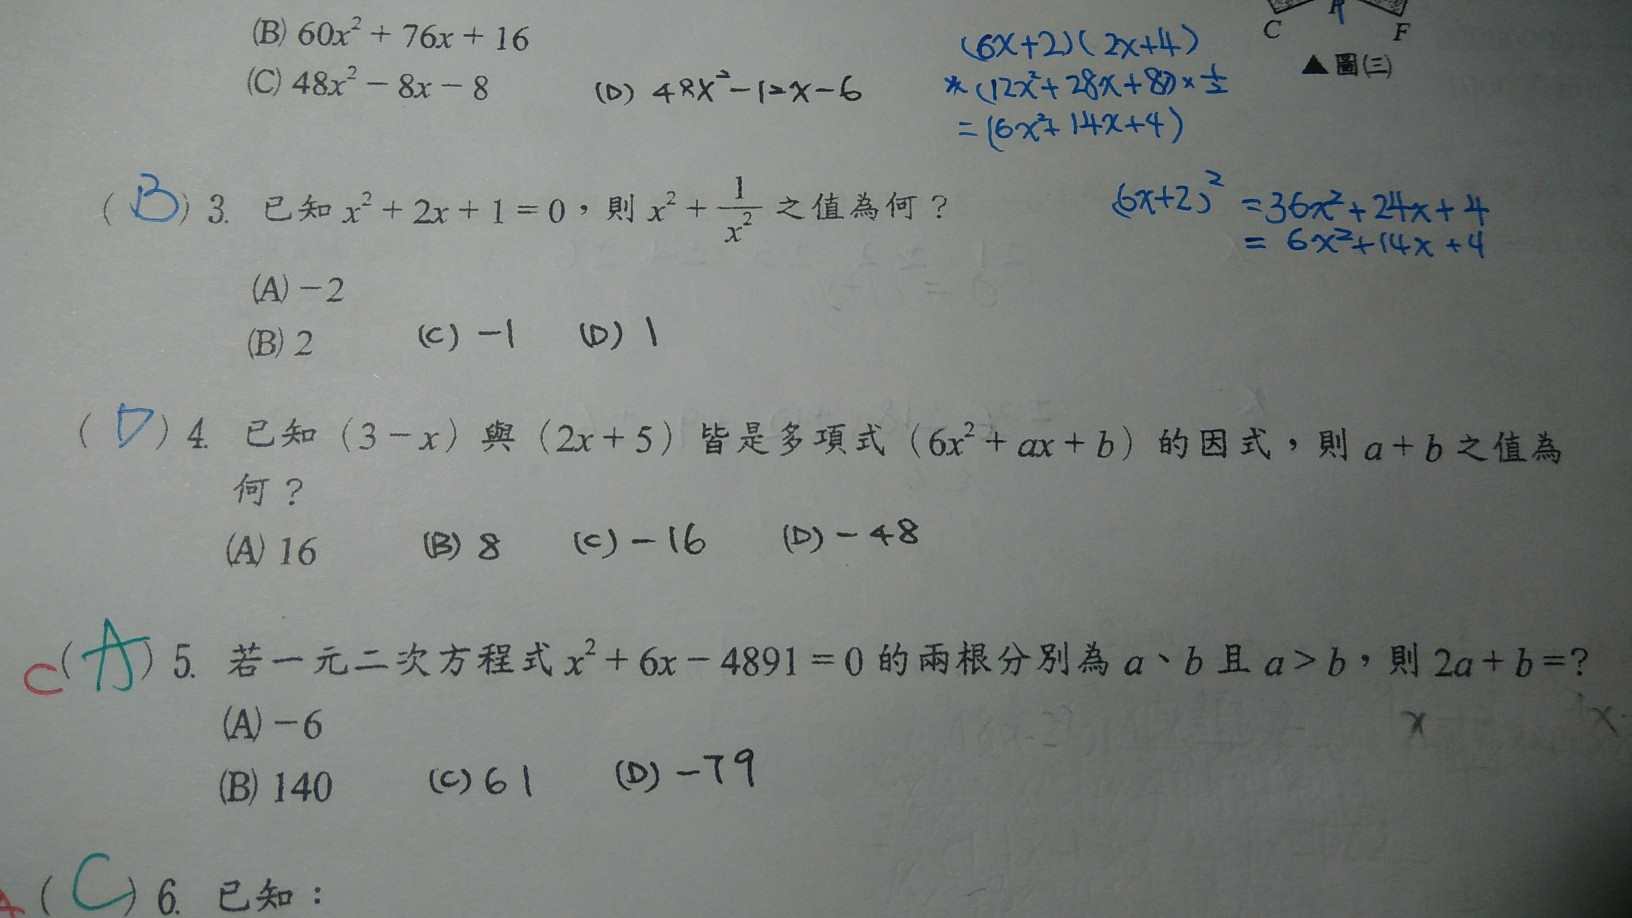 (B) 60x² + 76x + 16
(C) 48x² − 8x − 8 (D) 48x² − 12x − 6
C F
▲圖(三)
(6x+2)(2x+4)
*(12x²+28x+8)×½
=(6x²+14x+4)
(6x+2)² = 36x²+24x+4
= 6x²+14x+4
(B) 3. 已知 x² + 2x + 1 = 0,則 x² + 1/x² 之值為何?
(A) −2
(B) 2 (C) −1 (D) 1
(D) 4. 已知(3 − x)與(2x + 5)皆是多項式(6x² + ax + b)的因式,則 a + b 之值為
何?
(A) 16 (B) 8 (C) −16 (D) −48
C (A) 5. 若一元二次方程式 x² + 6x − 4891 = 0 的兩根分別為 a、b 且 a > b,則 2a + b = ?
x x
(A) −6
(B) 140 (C) 61 (D) −79
(C) 6. 已知: